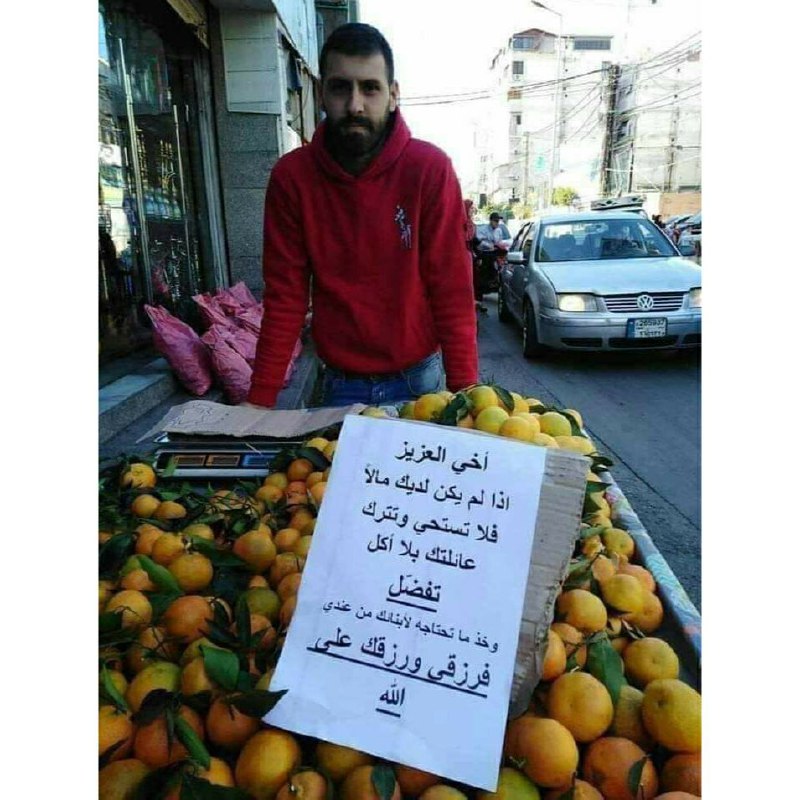 أخي العزيز
اذا لم يكن لديك مالاً
فلا تستحي وتترك
عائلتك بلا أكل
تفضَل
وخذ ما تحتاجه لأبنائك من عندي
فرزقي ورزقك على
الله